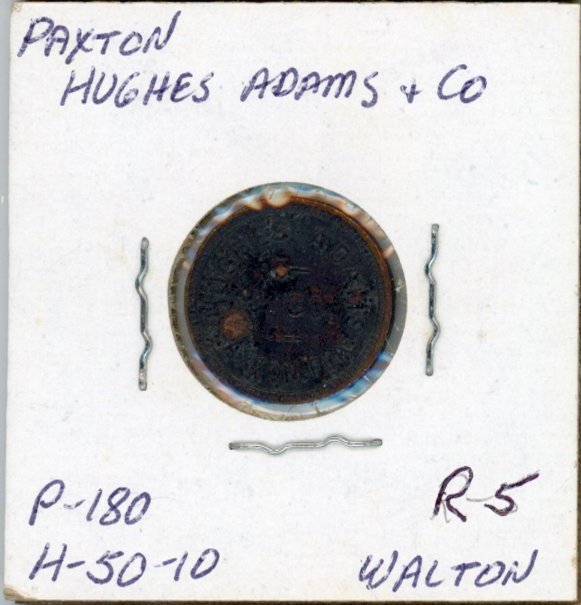 PAXTON
HUGHES ADAMS & CO
P-180
R-5
H-50-10
WALTON